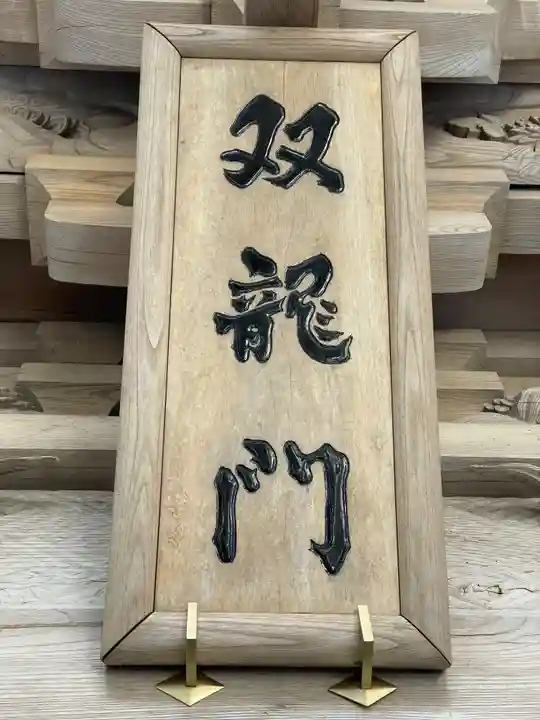 双龍門